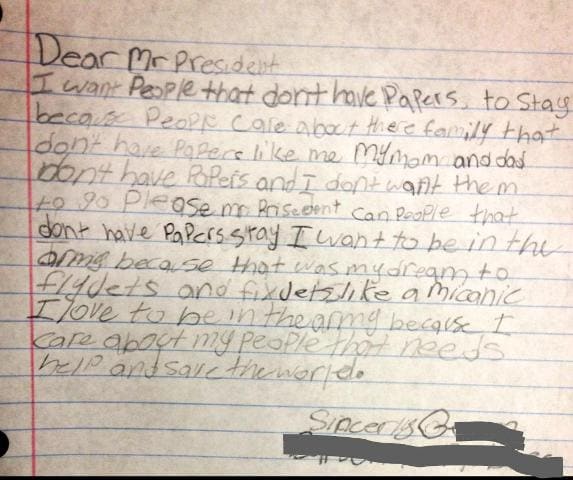 Dear Mr President
I want People that dont have Papers, to stay
because People Care about there family that
don't have Papers like me My mom and dad
Dont have Papers and I dont want them
to go Please mr Prisedent can people that
dont have Papers stay I want to be in the
army because that was my dream to
fly Jets and fix Jets like a micanic
I love to be in the army because I
care about my people that needs
help and save the world.
Sincerly